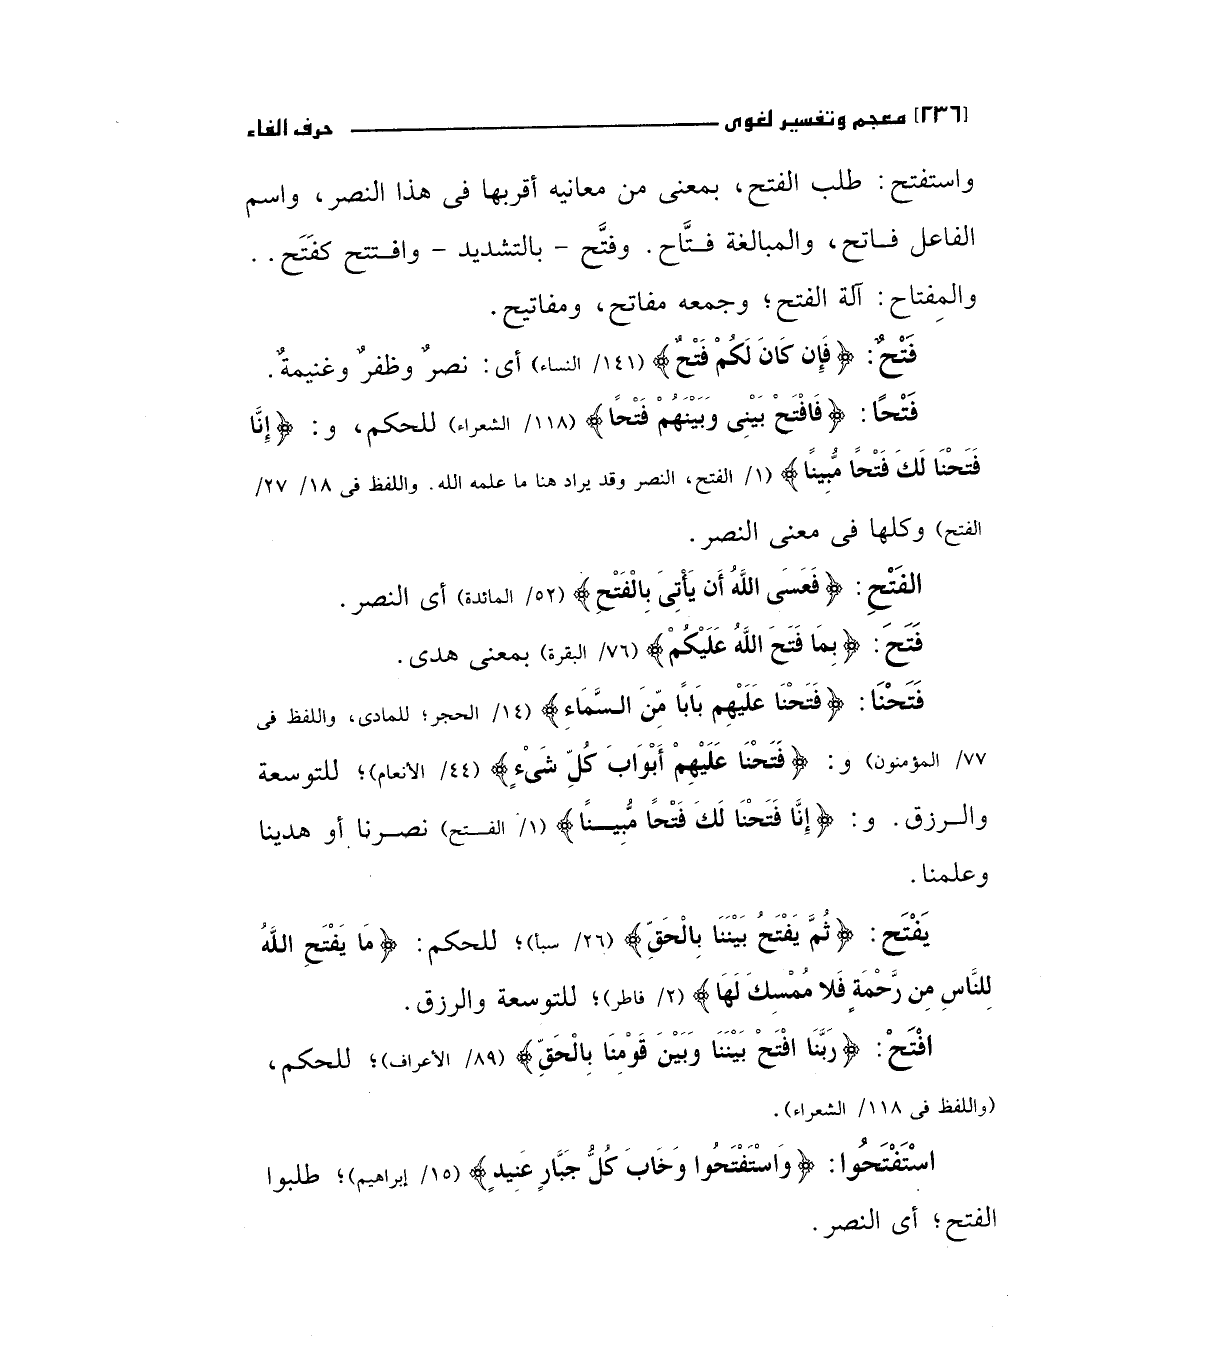 [٢٣٦] معجم وتفسير لغوى حرف الفاء
واستفتح: طلب الفتح، بمعنى من معانيه أقربها فى هذا النصر، واسم
الفاعل فـاتح، والمبالغة فـتَّاح. وفتَّح - بالتشديد - وافـتتح كفَتَح . .
والمِفتاح: آلة الفتح؛ وجمعه مفاتح، ومفاتيح.
فَتْحٌ: ﴿فَإِن كَانَ لَكُمْ فَتْحٌ﴾ (١٤١/ النساء) أى: نصرٌ وظفرٌ وغنيمةٌ.
فَتْحًا: ﴿فَافْتَحْ بَيْنِى وَبَيْنَهُمْ فَتْحًا﴾ (١١٨/ الشعراء) للحكم، و: ﴿إِنَّا
فَتَحْنَا لَكَ فَتْحًا مُّبِينًا﴾ (١/ الفتح، النصر وقد يراد هنا ما علمه الله. واللفظ فى ١٨/ ٢٧/
الفتح) وكلها فى معنى النصر.
الفَتْحِ: ﴿فَعَسَى اللَّهُ أَن يَأْتِىَ بِالْفَتْحِ﴾ (٥٢/ المائدة) أى النصر.
فَتَحَ: ﴿بِمَا فَتَحَ اللَّهُ عَلَيْكُمْ﴾ (٧٦/ البقرة) بمعنى هدى.
فَتَحْنَا: ﴿فَتَحْنَا عَلَيْهِم بَابًا مِّنَ الـسَّمَاءِ﴾ (١٤/ الحجر؛ للمادى، واللفظ فى
٧٧/ المؤمنون) و: ﴿فَتَحْنَا عَلَيْهِمْ أَبْوَابَ كُلِّ شَىْءٍ﴾ (٤٤/ الأنعام)؛ للتوسعة
والـرزق. و: ﴿إِنَّا فَتَحْنَا لَكَ فَتْحًا مُّبِيـــنًا﴾ (١/ الفـــتح) نصـرنا أو هدينا
وعلمنا.
يَفْتَح: ﴿ثُمَّ يَفْتَحُ بَيْنَنَا بِالْحَقِّ﴾ (٢٦/ سبأ)؛ للحكم: ﴿مَا يَفْتَحِ اللَّهُ
لِلنَّاسِ مِن رَّحْمَةٍ فَلا مُمْسِكَ لَهَا﴾ (٢/ فاطر)؛ للتوسعة والرزق.
افْتَحْ: ﴿رَبَّنَا افْتَحْ بَيْنَنَا وَبَيْنَ قَوْمِنَا بِالْحَقِّ﴾ (٨٩/ الأعراف)؛ للحكم،
(واللفظ فى ١١٨/ الشعراء).
اسْتَفْتَحُوا: ﴿وَاسْتَفْتَحُوا وَخَابَ كُلُّ جَبَّارٍ عَنِيدٍ﴾ (١٥/ إبراهيم)؛ طلبوا
الفتح؛ أى النصر.